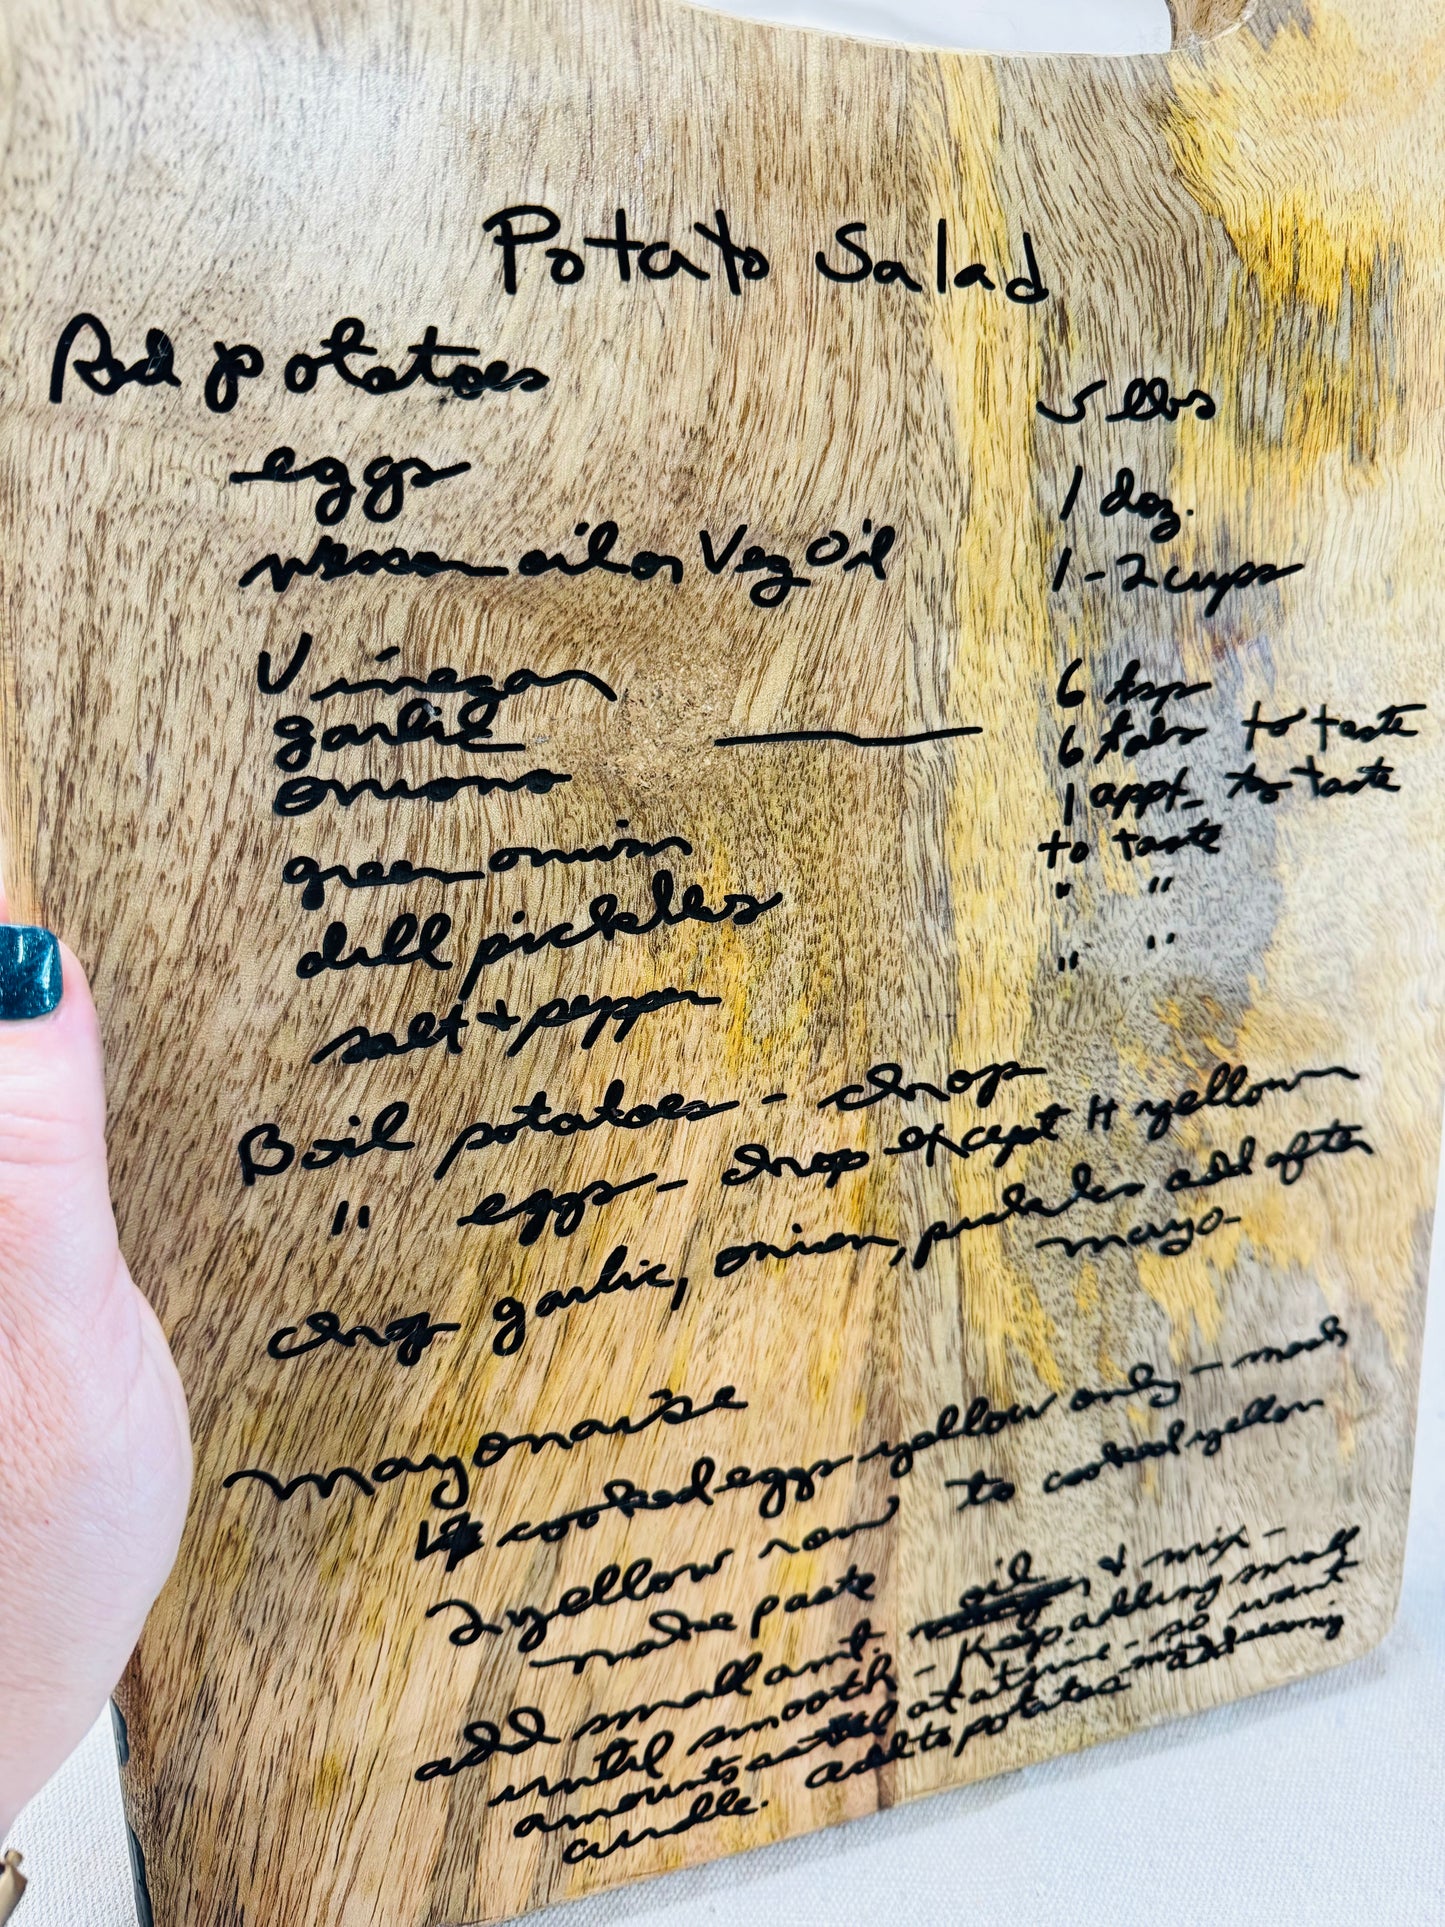 Potato Salad
Red potatoes 5 lbs
eggs 1 doz.
wesson oil or Veg Oil 1-2 cups
Vinegar 6 tsp
garlic 6 tabs to taste
onions 1 appt- to taste
green onions to taste
dill pickles " "
salt + pepper " "
Boil potatoes - chop
" eggs - chop except 4 yellow
chop garlic, onion, pickles add after
mayo-
Mayonaise
4 cooked eggs yellow only - mash
2 yellow raw to cooked yellow
make paste
add small amt. oil + mix -
until smooth - Keep adding small
amounts at a time - so wont
curdle. add to potatoes add seasoning